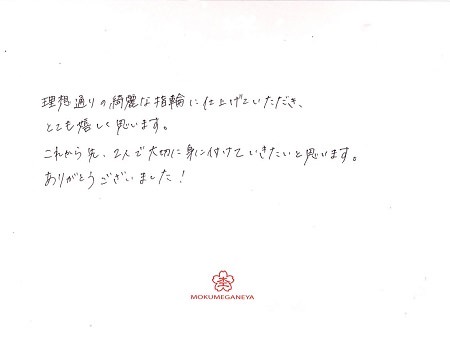 理想通りの綺麗な指輪に仕上げていただき、
とても嬉しく思います。
これから先、2人で大切に身に付けていきたいと思います。
ありがとうございました！
MOKUMEGANEYA